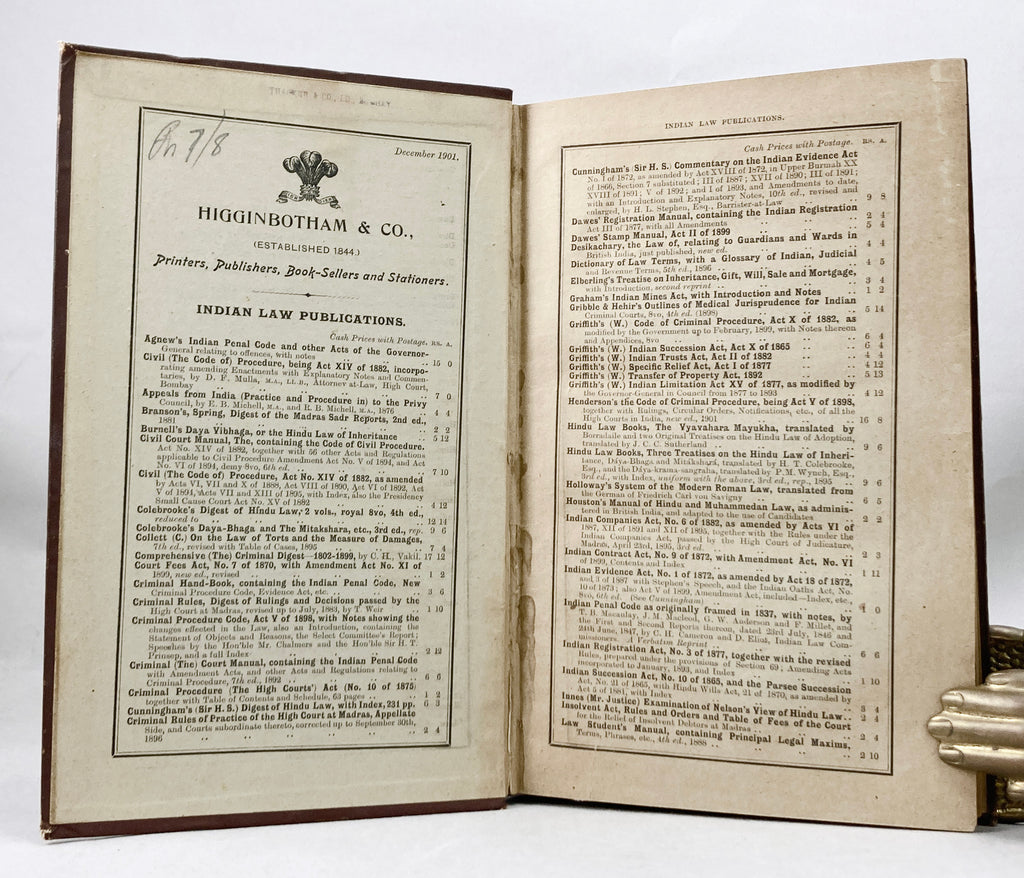 Pn 7/8
December 1901.
HIGGINBOTHAM & CO.,
(ESTABLISHED 1844.)
Printers, Publishers, Book-Sellers and Stationers.
INDIAN LAW PUBLICATIONS.
Cash Prices with Postage. RS. A.
Agnew's Indian Penal Code and other Acts of the Governor-
General relating to offences, with notes .. .. 15 0
Civil (The Code of) Procedure, being Act XIV of 1882, incorpo-
rating amending Enactments with Explanatory Notes and Commen-
taries, by D. F. Mulla, M.A., LL.B., Attorney at-Law, High Court,
Bombay .. .. 7 0
Appeals from India (Practice and Procedure in) to the Privy
Council, by E. B. Michell, M.A., and R. B. Michell, M.A., 1876 .. 4 4
Branson's, Spring, Digest of the Madras Sadr Reports, 2nd ed.,
1881 .. .. 2 2
Burnell's Daya Vibhaga, or the Hindu Law of Inheritance .. 5 12
Civil Court Manual, The, containing the Code of Civil Procedure,
Act No. XIV of 1882, together with 56 other Acts and Regulations
applicable to Civil Procedure Amendment Act No. V of 1894, and Act
No. VI of 1894, demy 8vo, 6th ed. .. .. 7 10
Civil (The Code of) Procedure, Act No. XIV of 1882, as amended
by Acts VI, VII and X of 1888, Act VIII of 1890, Act VI of 1892, Act
V of 1894, Acts VII and XIII of 1895, with Index, also the Presidency
Small Cause Court Act No. XV of 1882 .. 4 12
Colebrooke's Digest of Hindu Law, 2 vols., royal 8vo, 4th ed.,
reduced to .. .. 12 14
Colebrooke's Daya-Bhaga and The Mitakshara, etc., 3rd ed., rep. 9 6
Collett (C.) On the Law of Torts and the Measure of Damages,
7th ed., revised with Table of Cases, 1895 .. 7 4
Comprehensive (The) Criminal Digest—1802-1899, by C. H., Vakil. 17 12
Court Fees Act, No. 7 of 1870, with Amendment Act No. XI of
1899, new ed., revised .. .. 1 2
Criminal Hand-Book, containing the Indian Penal Code, New
Criminal Procedure Code, Evidence Act, etc. .. 3 6
Criminal Rules, Digest of Rulings and Decisions passed by the
High Court at Madras, revised up to July, 1883, by T. Weir .. 1 10
Criminal Procedure Code, Act V of 1898, with Notes showing the
changes effected in the Law, also an Introduction, containing the
Statement of Objects and Reasons, the Select Committee's Report;
Speeches by the Hon'ble Mr. Chalmers and the Hon'ble Sir H. T.
Prinsep, and a full Index .. 2 12
Criminal (The) Court Manual, containing the Indian Penal Code
with Amendment Acts, and other Acts and Regulations relating to
Criminal Procedure, 7th ed., 1892 .. 6 6
Criminal Procedure (The High Courts') Act (No. 10 of 1875)
together with Table of Contents and Schedule, 63 pages .. 1 2
Cunningham's (Sir H. S.) Digest of Hindu Law, with Index, 231 pp. 6 3
Criminal Rules of Practice of the High Court at Madras, Appellate
Side, and Courts subordinate thereto, corrected up to September 30th,
1896 .. .. 2 4
INDIAN LAW PUBLICATIONS.
Cash Prices with Postage. RS. A.
Cunningham's (Sir H. S.) Commentary on the Indian Evidence Act
No. I of 1872, as amended by Act XVIII of 1872, in Upper Burmah XX
of 1866, Section 7 substituted; III of 1887; XVII of 1890; III of 1891;
XVIII of 1891; V of 1892; and I of 1893, and Amendments to date,
with an Introduction and Explanatory Notes, 10th ed., revised and
enlarged, by H. L. Stephen, Esq., Barrister-at-Law .. 9 8
Dawes' Registration Manual, containing the Indian Registration
Act III of 1877, with all Amendments .. 2 4
Dawes' Stamp Manual, Act II of 1899 .. 5 4
Desikachary, the Law of, relating to Guardians and Wards in
British India, just published, new ed. .. 4 4
Dictionary of Law Terms, with a Glossary of Indian, Judicial
and Revenue Terms, 5th ed., 1896 .. 4 5
Elberling's Treatise on Inheritance, Gift, Will, Sale and Mortgage,
with Introduction, second reprint .. 3 4
Graham's Indian Mines Act, with Introduction and Notes .. 1 2
Gribble & Hehir's Outlines of Medical Jurisprudence for Indian
Criminal Courts, 8vo, 4th ed. (1898) .. 5 14
Griffith's (W.) Code of Criminal Procedure, Act X of 1882, as
modified by the Government up to February, 1899, with Notes thereon
and Appendices, 8vo .. 6 4
Griffith's (W.) Indian Succession Act, Act X of 1865 .. 6 4
Griffith's (W.) Indian Trusts Act, Act II of 1882 .. 4 4
Griffith's (W.) Specific Relief Act, Act I of 1877 .. 4 12
Griffith's (W.) Transfer of Property Act, 1892 .. 5 13
Griffith's (W.) Indian Limitation Act XV of 1877, as modified by
the Governor-General in Council from 1877 to 1893 .. 4 12
Henderson's the Code of Criminal Procedure, being Act V of 1898,
together with Rulings, Circular Orders, Notifications, etc., of all the
High Courts in India, new ed., 1901 .. 16 8
Hindu Law Books, The Vyavahara Mayukha, translated by
Borradaile and two Original Treatises on the Hindu Law of Adoption,
translated by J. C. C. Sutherland .. 9 6
Hindu Law Books, Three Treatises on the Hindu Law of Inheri-
tance, Dáya-Bhaga and Mitákshará, translated by H. T. Colebrooke,
Esq., and the Dáya-krama-sangraha, translated by P. M. Wynch, Esq.,
3rd ed., with Index, uniform with the above, 3rd ed., rep., 1895 .. 9 6
Holloway's System of the Modern Roman Law, translated from
the German of Friedrich Carl von Savigny .. 6 5
Houston's Manual of Hindu and Muhammedan Law, as adminis-
tered in British India, and adapted to the use of Candidates .. 2 2
Indian Companies Act, No. 6 of 1882, as amended by Acts VI of
1887, XII of 1891 and XII of 1895, together with the Rules under the
Indian Companies Act, passed by the High Court of Judicature,
Madras, April 23rd, 1895, 3rd ed. .. 2 3
Indian Contract Act, No. 9 of 1872, with Amendment Act, No. VI
of 1899, Contents and Index .. 1 11
Indian Evidence Act, No. 1 of 1872, as amended by Act 18 of 1872,
and 3 of 1887 with Stephen's Speech, and the Indian Oaths Act, No.
10 of 1873; also Act V of 1899, Amendment Act, included—Index, etc.,
8vo, 6th ed. (See Cunningham) .. 1 0
Indian Penal Code as originally framed in 1837, with notes, by
T. B. Macaulay, J. M. Macleod, G. W. Anderson and F. Millet, and
the First and Second Reports thereon, dated 23rd July, 1846 and
24th June, 1847, by C. H. Cameron and D. Eliott, Indian Law Com-
missioners. A Verbatim Reprint .. 6 6
Indian Registration Act, No. 3 of 1877, together with the revised
Rules, prepared under the provisions of Section 69; Amending Acts
incorporated to January, 1893, and Index .. 1 10
Indian Succession Act, No. 10 of 1865, and the Parsee Succession
Act, No. 21 of 1865, with Hindu Wills Act, 21 of 1870, as amended by
Act 5 of 1881, with Index
Innes (Mr. Justice) Examination of Nelson's View of Hindu Law .. 3 4
Insolvent Act, Rules and Orders and Table of Fees of the Court
for the Relief of Insolvent Debtors at Madras .. 2 4
Law Student's Manual, containing Principal Legal Maxims,
Terms, Phrases, etc., 4th ed., 1888 .. 2 10